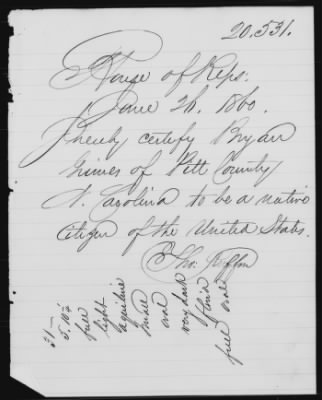 20.531.
House of Reps:
June 26. 1860.
I hereby certify Bryan
Grimes of Pitt County
N. Carolina to be a native
Citizen of the United States.
Tho: Ruffin
31—
5.10½
full
light
aquiline
small
oval
very dark
florid
full oval